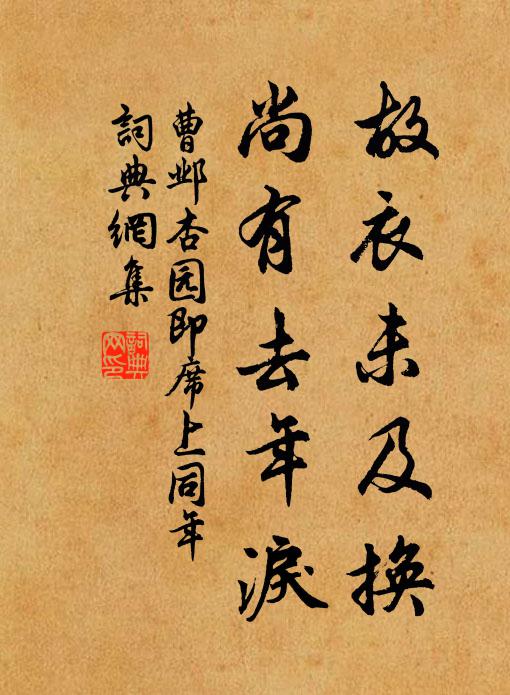 故衣未及换
尚有去年淚
曹邺杏园即席上同年
詞典網集
詞典
网印